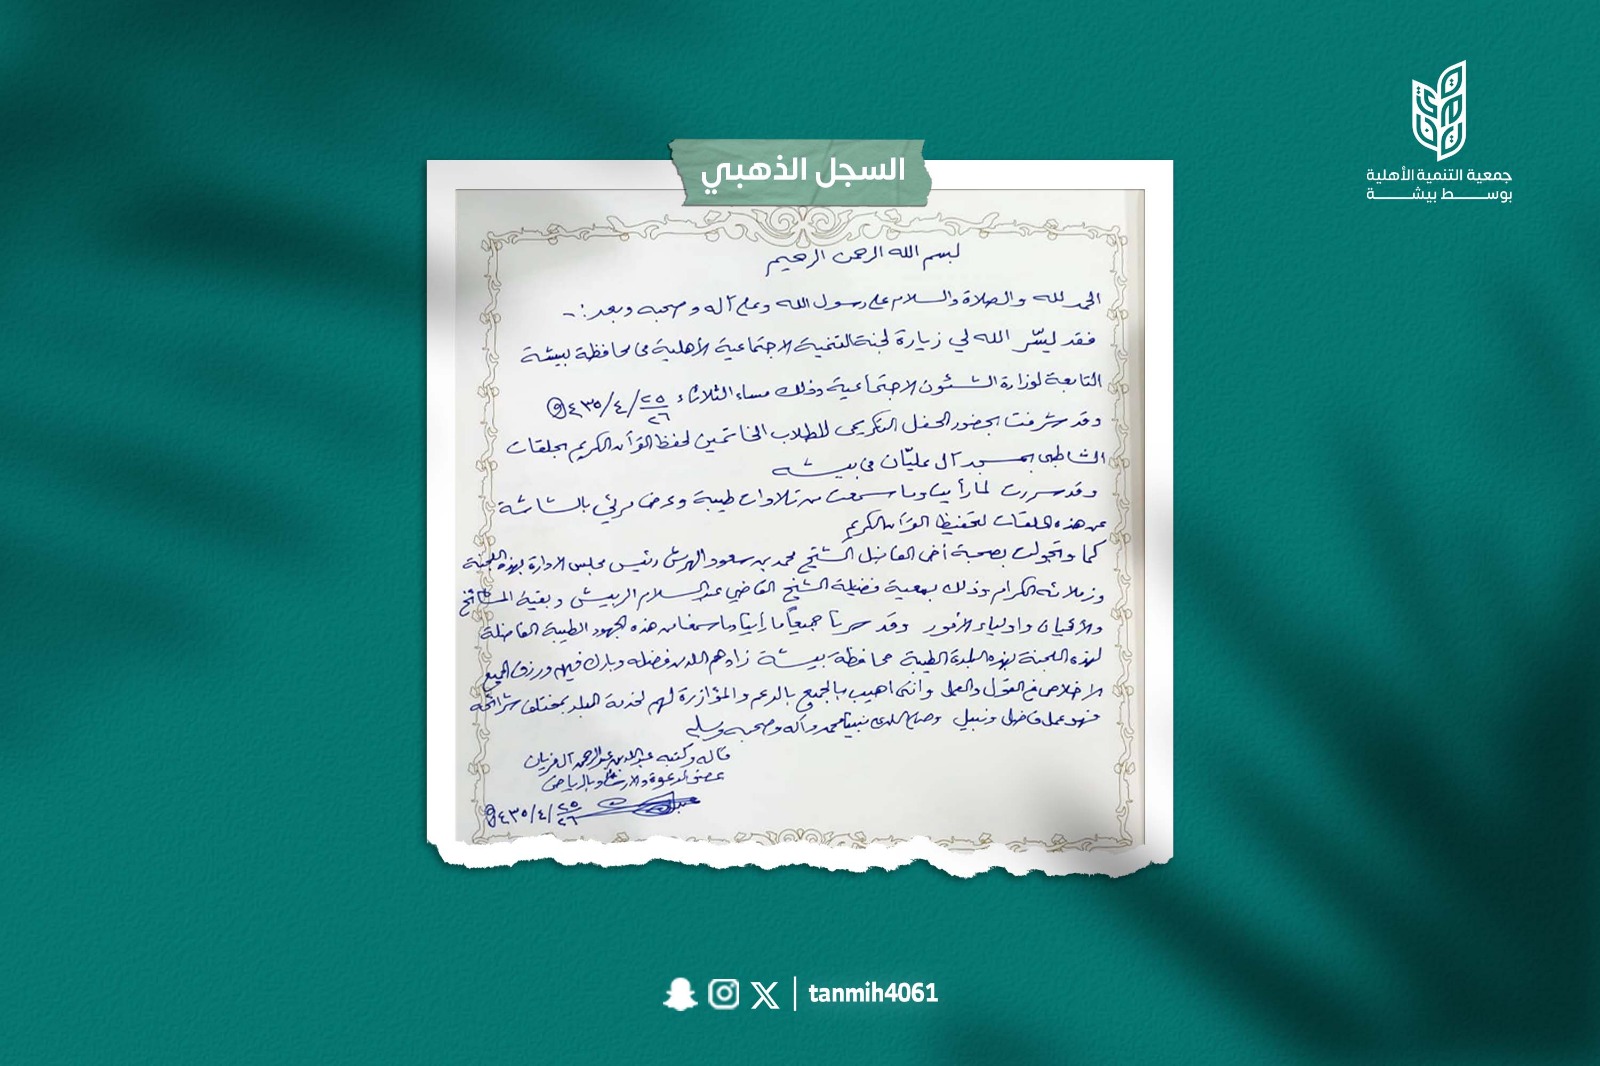 جمعية التنمية الأهلية
بوسط بيشة
السجل الذهبي
بسم الله الرحمن الرحيم
الحمد لله والصلاة والسلام على رسول الله وعلى آله وصحبه وبعد :-
فقد يسّر الله لي زيارة لجنة التنمية الاجتماعية الأهلية في محافظة بيشة
التابعة لوزارة الشئون الاجتماعية وذلك مساء الثلاثاء ٢٥/٢٦/٤/١٤٣٥هـ
وقد شرفت بحضور الحفل التكريمي للطلاب الخاتمين لحفظ القرآن الكريم بحلقات
الشاطبي بمسجد آل عليّان في بيشه
وقد سررت لما رأيت وما سمعت من تلاوات طيبة وعرض مرئي بالشاشة
عن هذه الحلقات لتحفيظ القرآن الكريم
كما وتجولت بصحبة أخي الفاضل الشيخ محمد بن سعود الهرش رئيس مجلس الادارة بهذه اللجنة
وزملائه الكرام وذلك بمعية فضيلة الشيخ القاضي عبدالسلام الربيش وبقية المشائخ
والأعيان واولياء الأمور وقد سرنا جميعاً ما رأينا وما سمعنا من هذه الجهود الطيبة الفاضلة
لهذه اللجنة بهذه البلدة الطيبة محافظة بيشة زادهم الله من فضله وبارك فيهم ورزق الجميع
الاخلاص في القول والعمل وانني اهيب بالجميع بالدعم والمؤازرة لهم لخدمة البلد بمختلف شرائحه
فهو عمل فاضل ونبيل وصلى الله على نبينا محمد وآله وصحبه وسلم
قاله وكتبه عبدالله بن عبدالرحمن آل
عضو الدعوة والارشاد بالرياض
٢٥/٢٦/٤/١٤٣٥هـ
tanmih4061